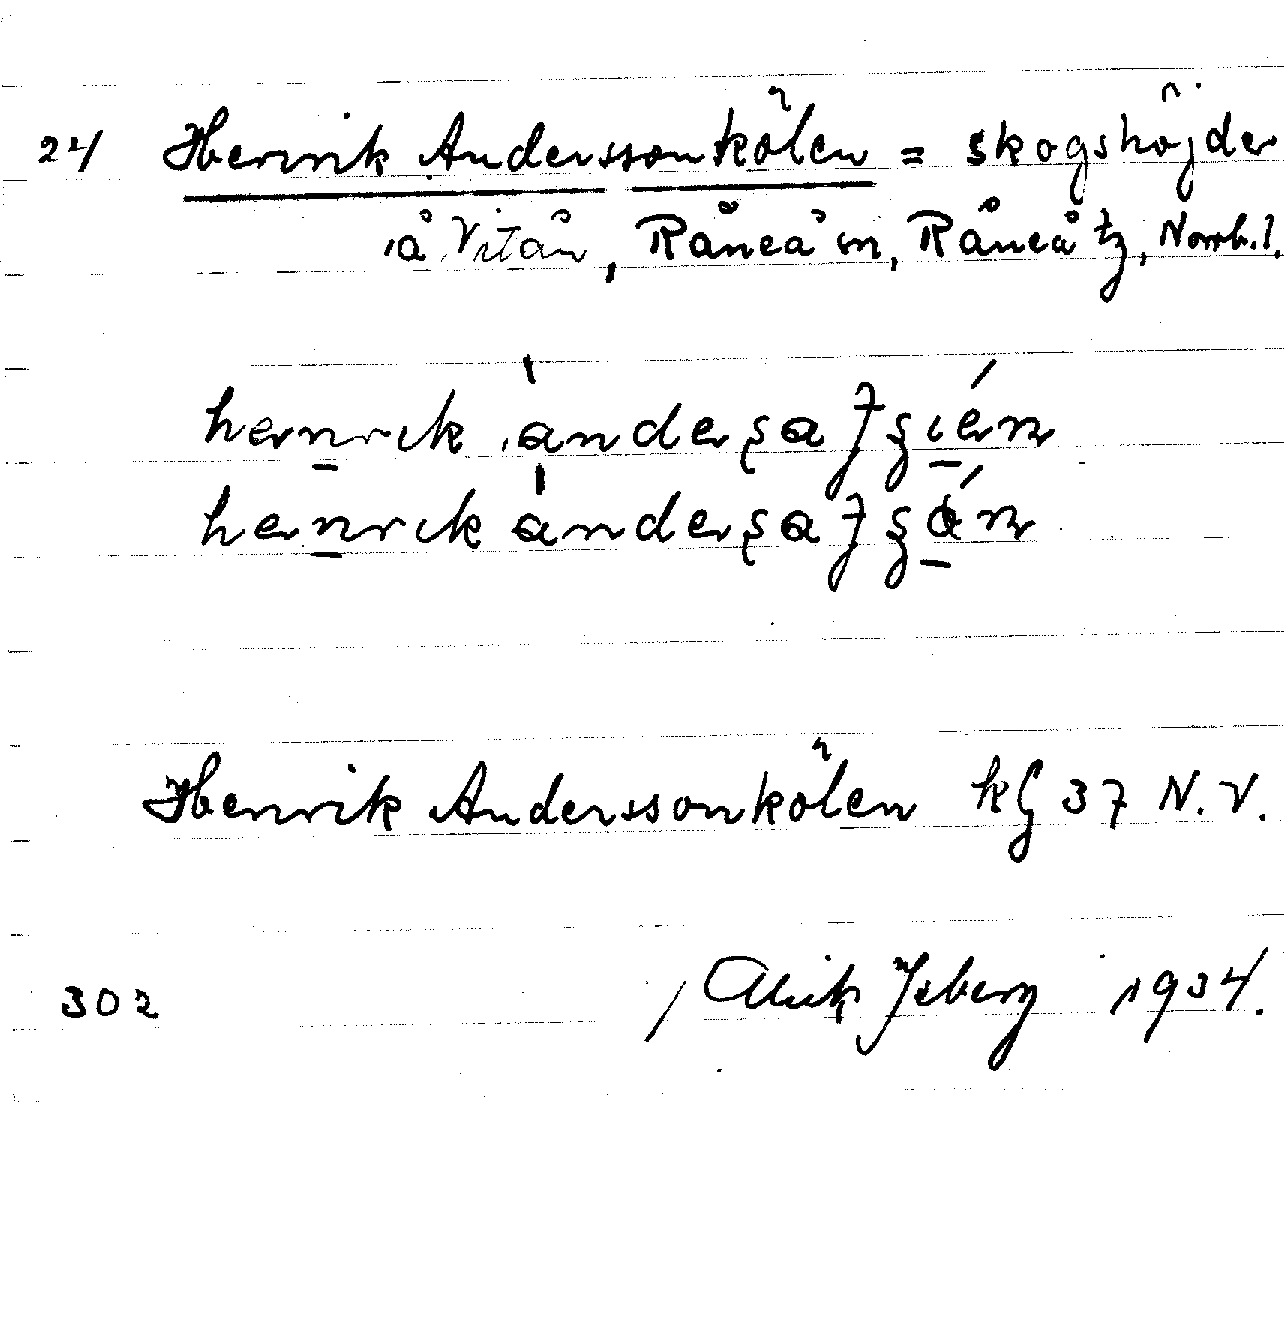 24 Henrik Anderssonkölen = skogshöjder
å Vitån, Råneå sn, Råneå tg, Norrb. l.
henrik ànders
henrik ànders
Henrik Anderssonkölen kG 37 N.V.
302 / Alrik Isberg 1934.